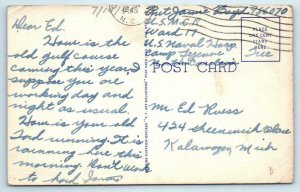 7/18/1945
N.C.
Pvt. Jamie Boyd 956070
U.S.M.C.R.
Ward 17
U.S. Naval Hosp.
Camp Lejeune
Free
PLACE
ONE CENT
STAMP
HERE
POST CARD
Dear Ed.
How is the
old golf course
coming this year, I
suppose you are
working day and
night as usual.
How is your old
Ford running. It is
raining here this
morning. Don't work
to hard
Mr Ed Huss
424 Greenwich Place
Kalamazoo Mich
D